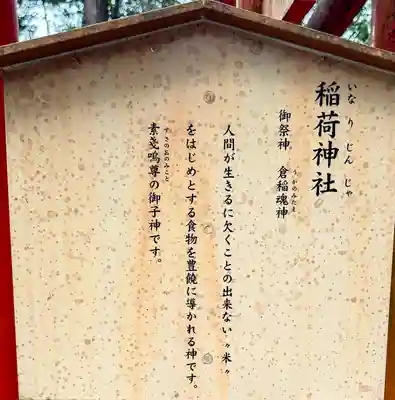 稲荷神社
いなりじんじゃ
御祭神 倉稲魂神
うがのみたま
人間が生きるに欠くことの出来ない〝米〟
をはじめとする食物を豊饒に導かれる神です。
素戔嗚尊の御子神です。
すさのおのみこと